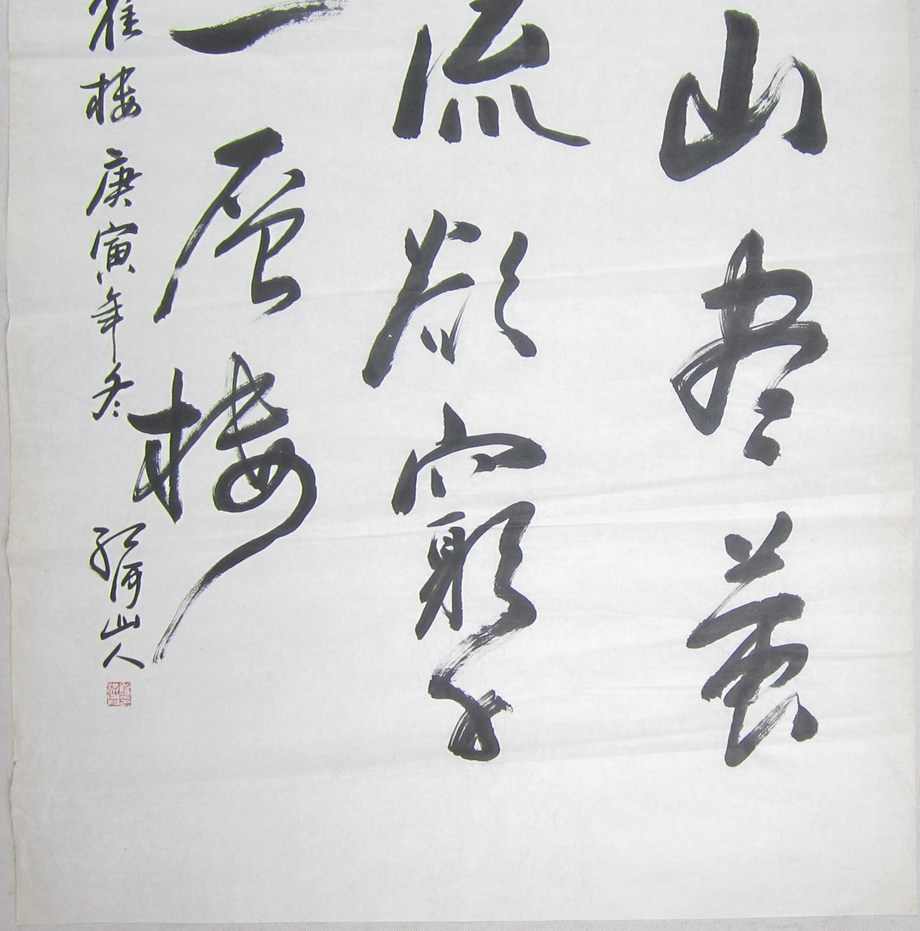 山尽黄
流欲窮千
一层楼
雀楼 庚寅年冬
红河山人